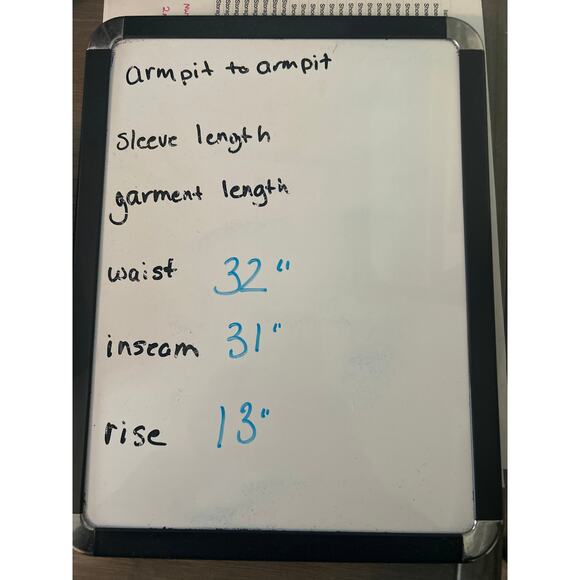 armpit to armpit
sleeve length
garment length
waist 32"
inseam 31"
rise 13"